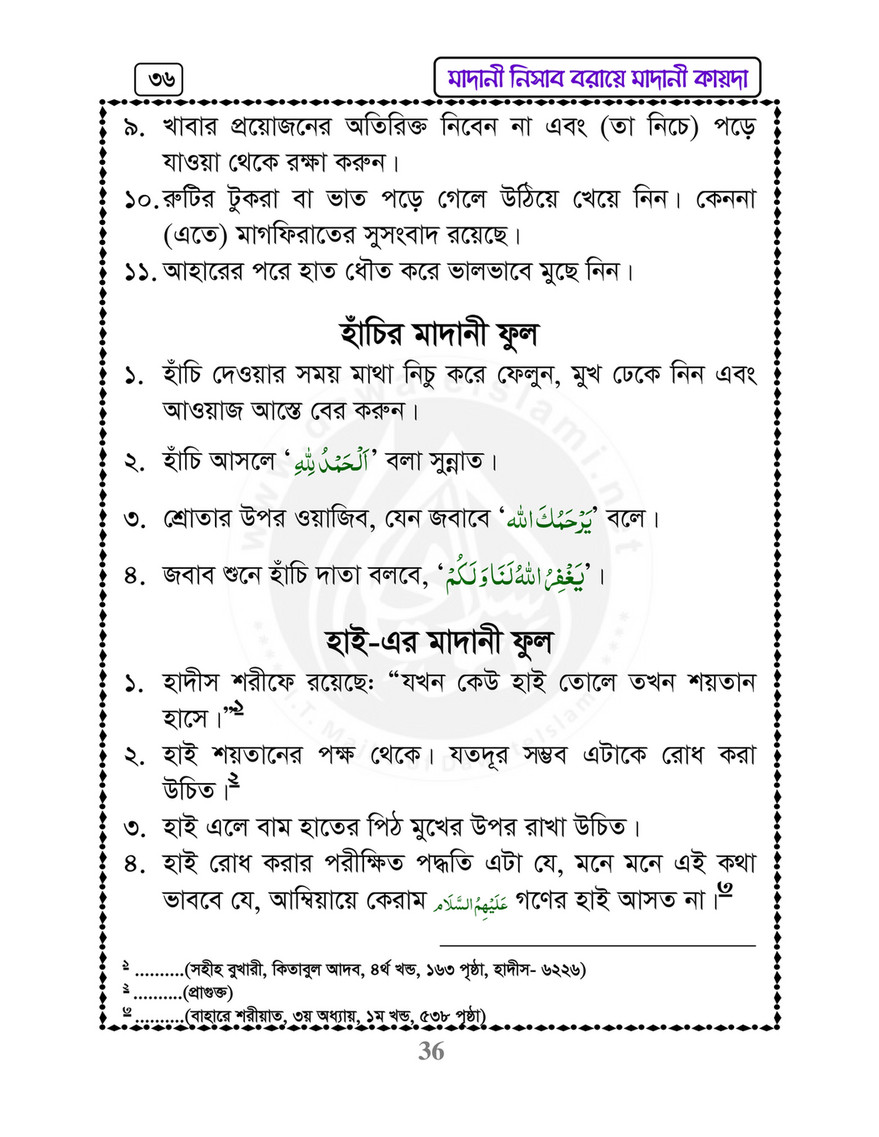 ৩৬
মাদানী নিসাব বরায়ে মাদানী কায়দা
৯. খাবার প্রয়োজনের অতিরিক্ত নিবেন না এবং (তা নিচে) পড়ে
যাওয়া থেকে রক্ষা করুন।
১০. রুটির টুকরা বা ভাত পড়ে গেলে উঠিয়ে খেয়ে নিন। কেননা
(এতে) মাগফিরাতের সুসংবাদ রয়েছে।
১১. আহারের পরে হাত ধৌত করে ভালভাবে মুছে নিন।
হাঁচির মাদানী ফুল
১. হাঁচি দেওয়ার সময় মাথা নিচু করে ফেলুন, মুখ ঢেকে নিন এবং
আওয়াজ আস্তে বের করুন।
২. হাঁচি আসলে ‘اَلْحَمْدُ لِلّٰهِ’ বলা সুন্নাত।
৩. শ্রোতার উপর ওয়াজিব, যেন জবাবে ‘يَرْحَمُكَ الله’ বলে।
৪. জবাব শুনে হাঁচি দাতা বলবে, ‘يَغْفِرُ اللهُ لَنَا وَلَكُمْ’।
হাই-এর মাদানী ফুল
১. হাদীস শরীফে রয়েছেঃ “যখন কেউ হাই তোলে তখন শয়তান
হাসে।”১
২. হাই শয়তানের পক্ষ থেকে। যতদূর সম্ভব এটাকে রোধ করা
উচিত।২
৩. হাই এলে বাম হাতের পিঠ মুখের উপর রাখা উচিত।
৪. হাই রোধ করার পরীক্ষিত পদ্ধতি এটা যে, মনে মনে এই কথা
ভাববে যে, আম্বিয়ায়ে কেরাম عَلَيْهِمُ السَّلَام গণের হাই আসত না।৩
১ ..........(সহীহ বুখারী, কিতাবুল আদব, ৪র্থ খন্ড, ১৬৩ পৃষ্ঠা, হাদীস- ৬২২৬)
২ ..........(প্রাগুক্ত)
৩ ..........(বাহারে শরীয়াত, ৩য় অধ্যায়, ১ম খন্ড, ৫৩৮ পৃষ্ঠা)
36
www.dawateislami.net
I.T. Majlis of DawateIslami